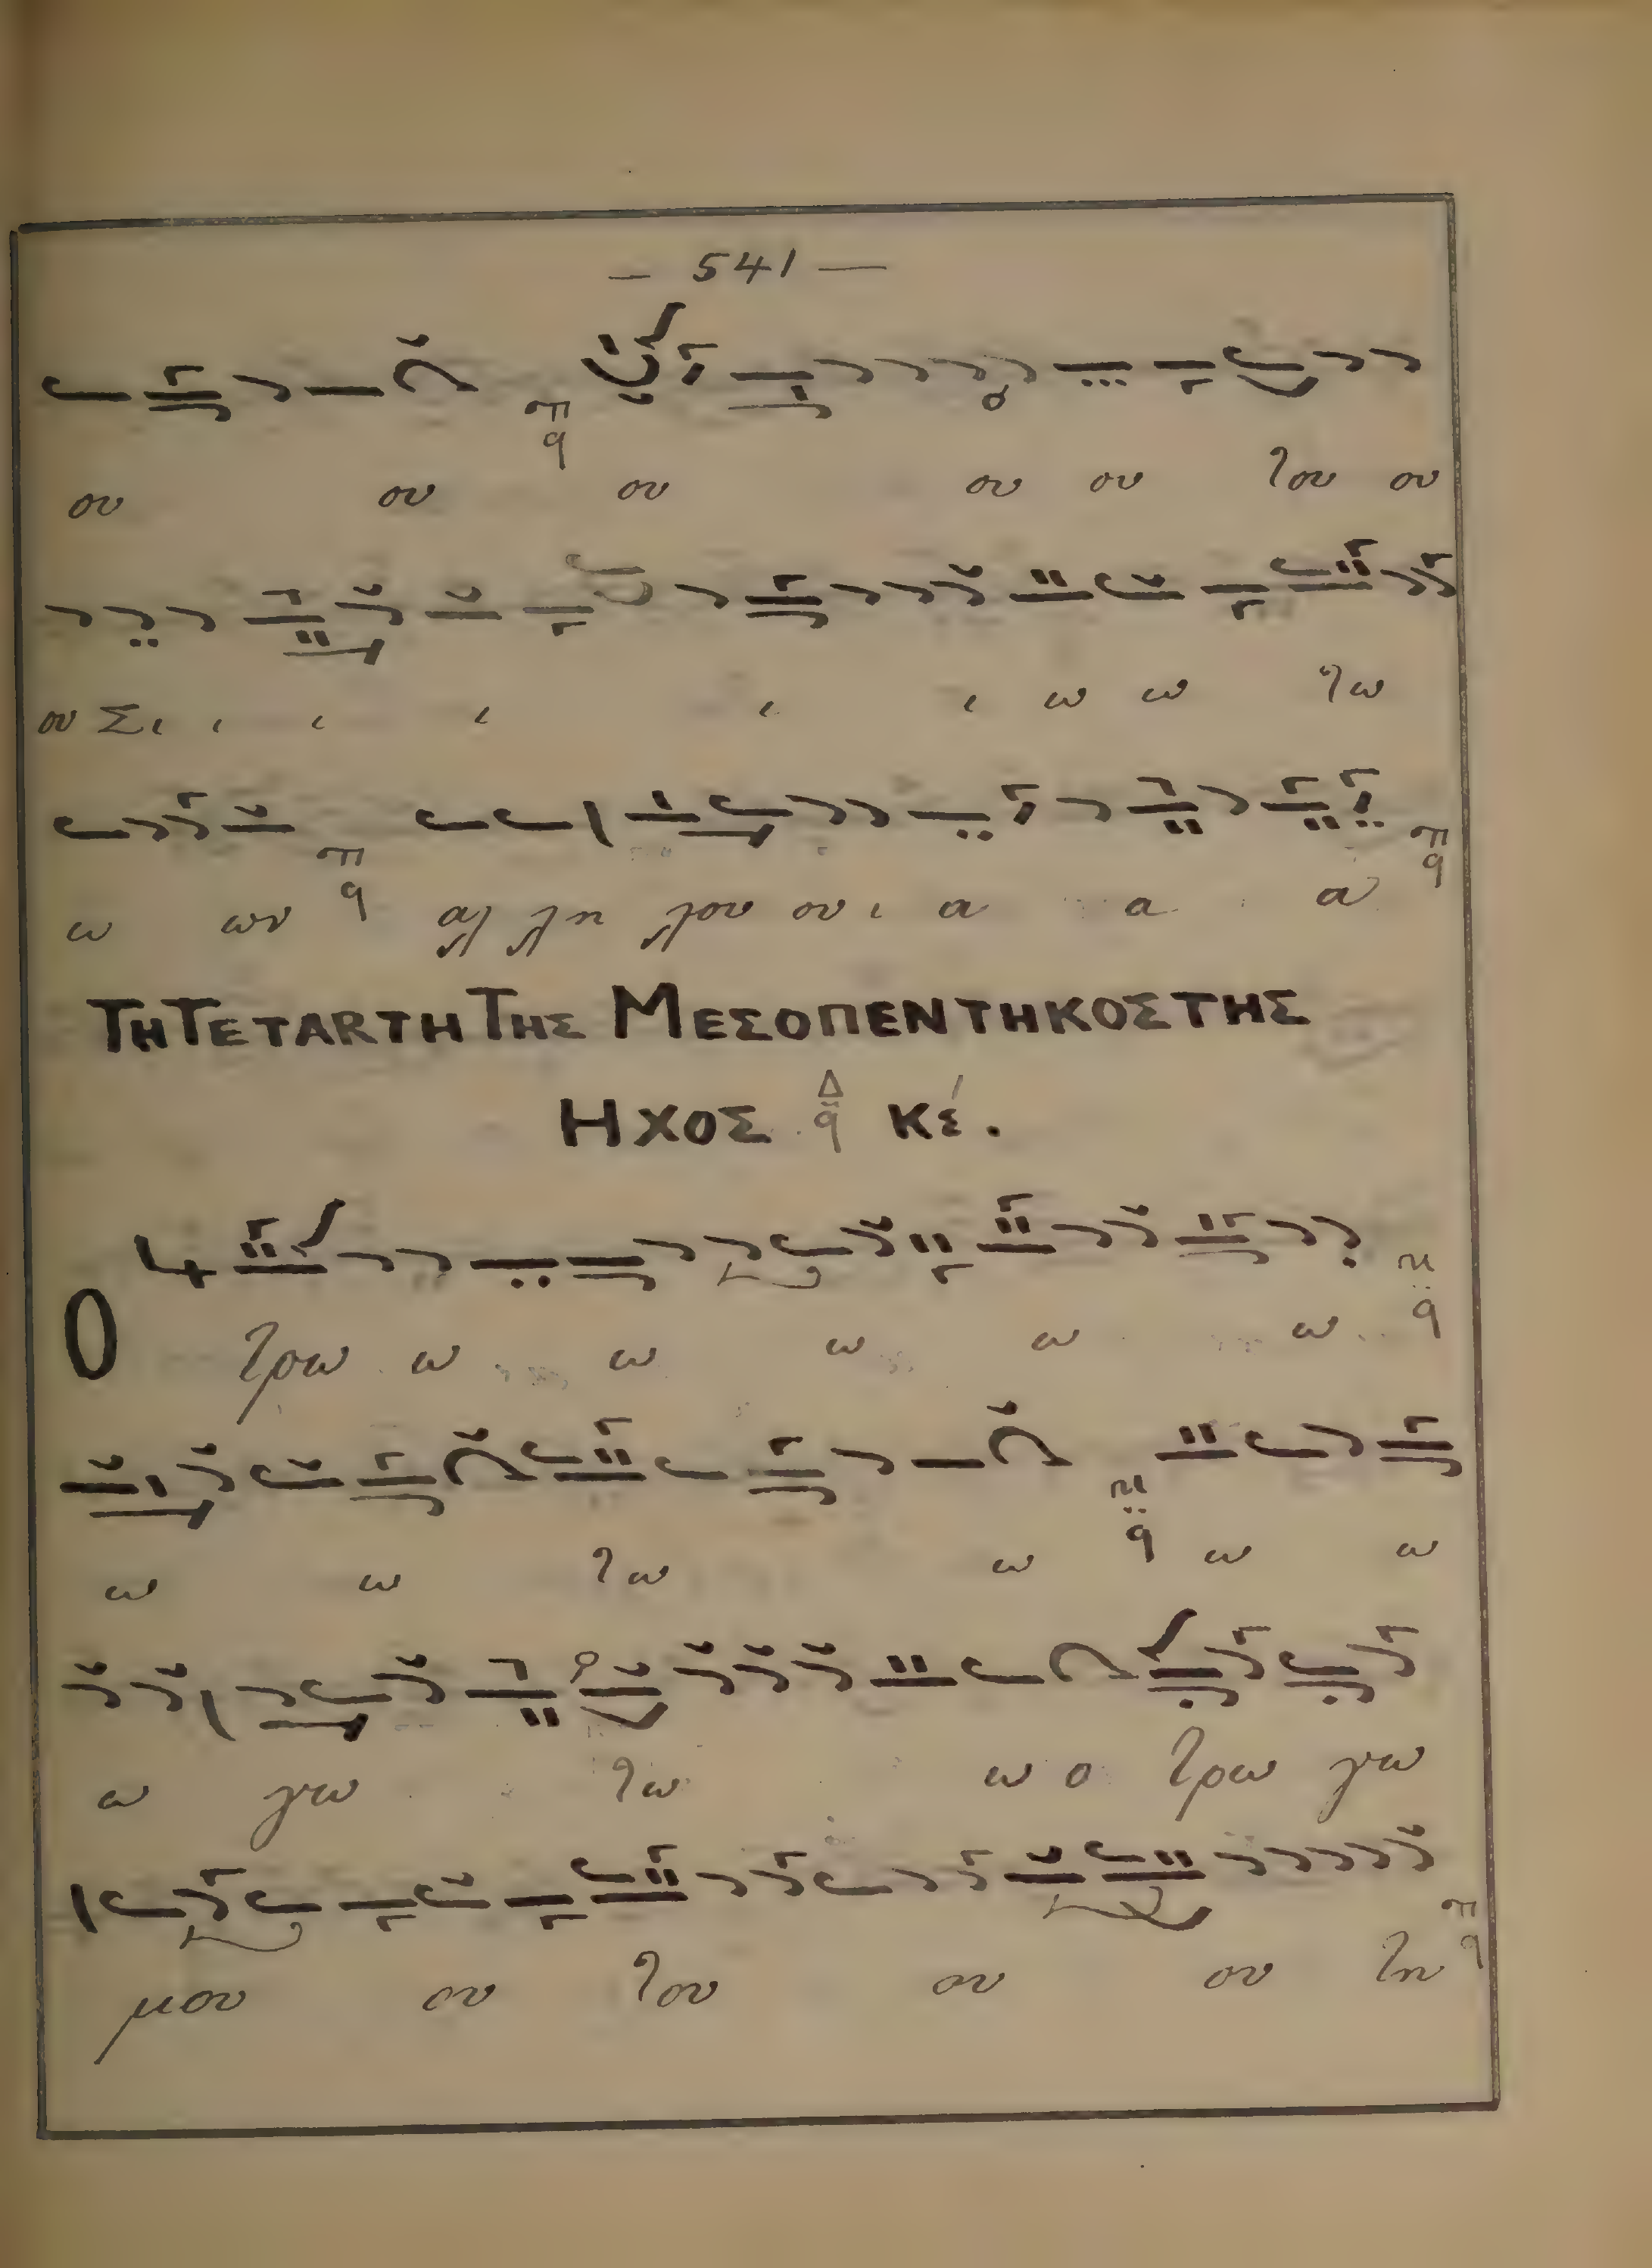 — 541 —
ου ου ου ου ου του ου
ου Σι ι ι ι ι ι ω ω τω
ω ων αλ λη λου ου ι α α α
ΤΗ ΤΕΤΑRΤΗ ΤΗΣ ΜΕΣΟΠΕΝΤΗΚΟΣΤΗΣ
ΗΧΟΣ Δ̈ q Κέ.
Ο τρω ω ω ω ω ω
ω ω τω ω ω ω
ω γω τω ω ο τρω γω
μου ου του ου ου τη